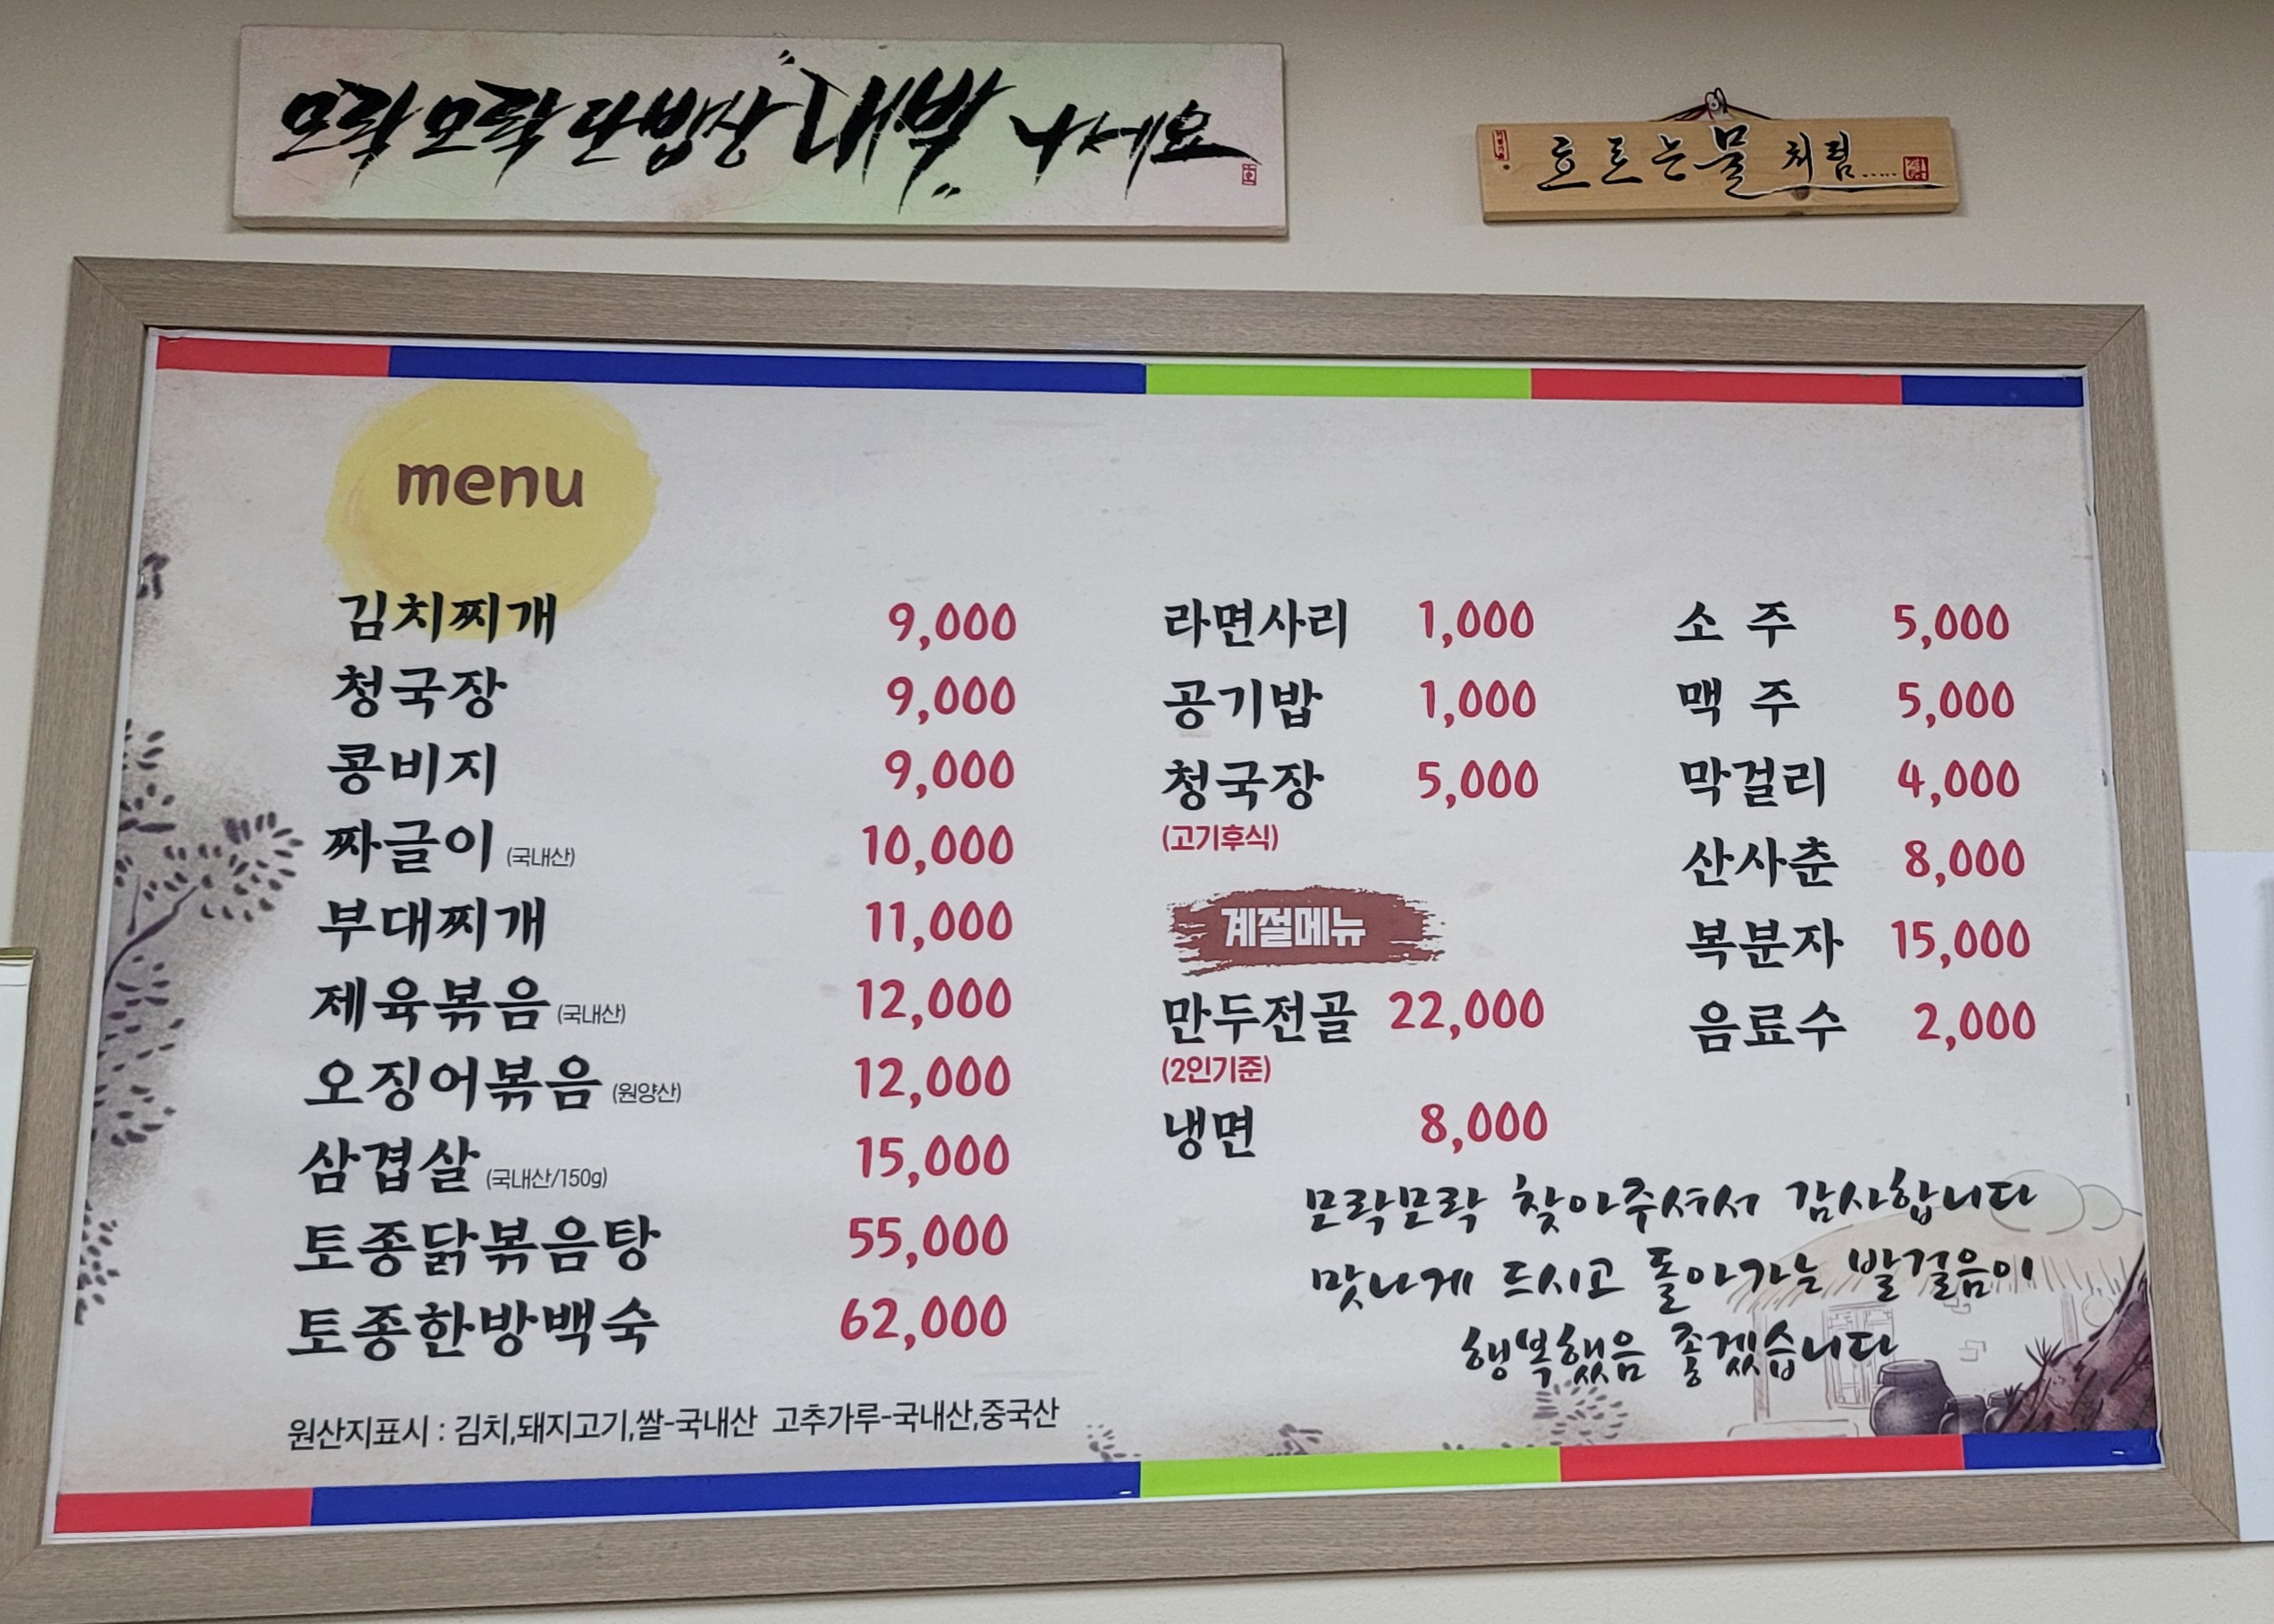 모락모락 단밥상 "대박" 나세요
흐르는 물 처럼.....
menu
김치찌개 9,000
청국장 9,000
콩비지 9,000
짜글이 (국내산) 10,000
부대찌개 11,000
제육볶음 (국내산) 12,000
오징어볶음 (원양산) 12,000
삼겹살 (국내산/150g) 15,000
토종닭볶음탕 55,000
토종한방백숙 62,000
원산지표시 : 김치,돼지고기,쌀-국내산 고추가루-국내산,중국산
라면사리 1,000
공기밥 1,000
청국장 5,000
(고기후식)
계절메뉴
만두전골 22,000
(2인기준)
냉면 8,000
소 주 5,000
맥 주 5,000
막걸리 4,000
산사춘 8,000
복분자 15,000
음료수 2,000
모락모락 찾아주셔서 감사합니다
맛나게 드시고 돌아가는 발걸음이
행복했음 좋겠습니다